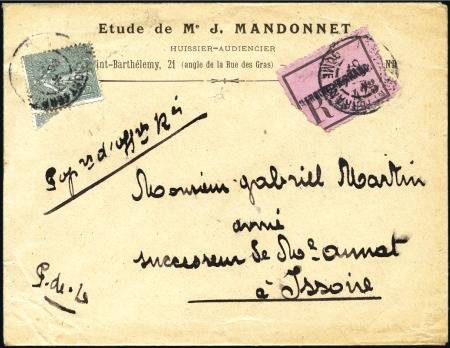 Etude de Me J. MANDONNET
HUISSIER-AUDIENCIER
int-Barthélemy, 21 (angle de la Rue des Gras)
R
Papiers d'affres Rés
Monsieur gabriel Martin
avoué
successeur de Me annat
à Issoire
P. de. D.